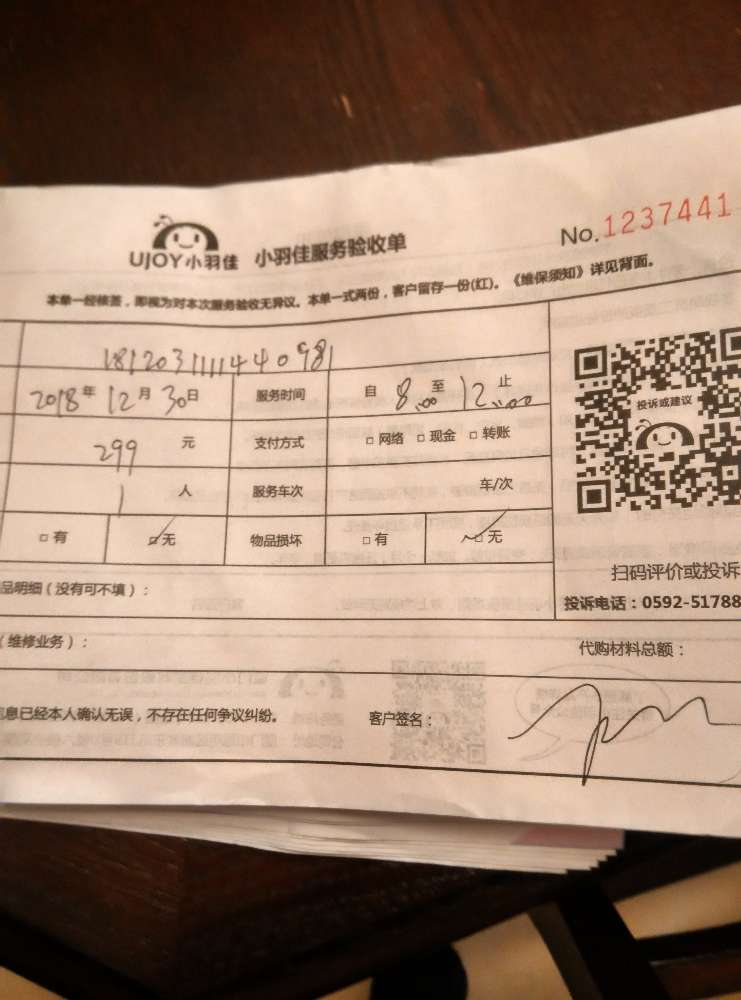 UJOY小羽佳 小羽佳服务验收单 No.1237441
本单一经核签，即视为对本次服务验收无异议。本单一式两份，客户留存一份(红)。《维保须知》详见背面。
181203111144098
2018年12月30日 服务时间 自8:00至12:00止
299元 支付方式 □网络 □现金 □转账
1人 服务车次 车/次
□有 □无 物品损坏 □有 □无
投诉或建议
扫码评价或投诉
投诉电话：0592-51788
品明细（没有可不填）：
（维修业务）： 代购材料总额：
信息已经本人确认无误，不存在任何争议纠纷。 客户签名：